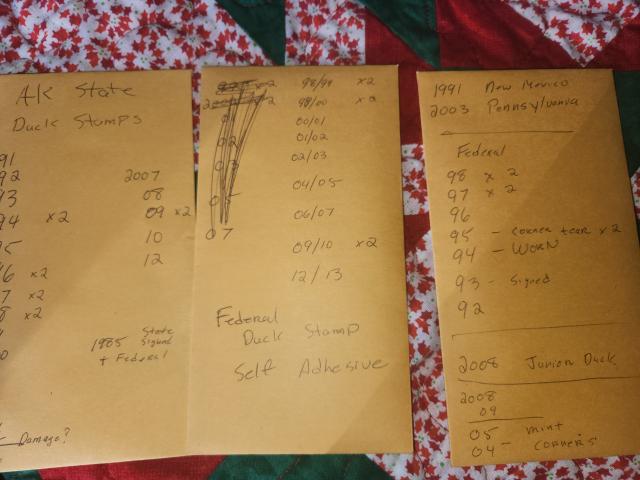 AK State
Duck Stamps
91
92
93
94 x2
95
6 x2
7 x2
8 x2
2007
08
09 x2
10
12
1985 State
Signed
+ Federal
Damage?
98/99 x2
99/00
00/01
01/02
02/03
04/05
06/07
09/10 x2
12/13
07
Federal
Duck Stamp
Self Adhesive
1991 New Mexico
2003 Pennsylvania
Federal
98 x 2
97 x 2
96
95 - corner tear x2
94 - WORN
93 - Signed
92
2008 Junior Duck
2008
09
05 mint
04 - corners